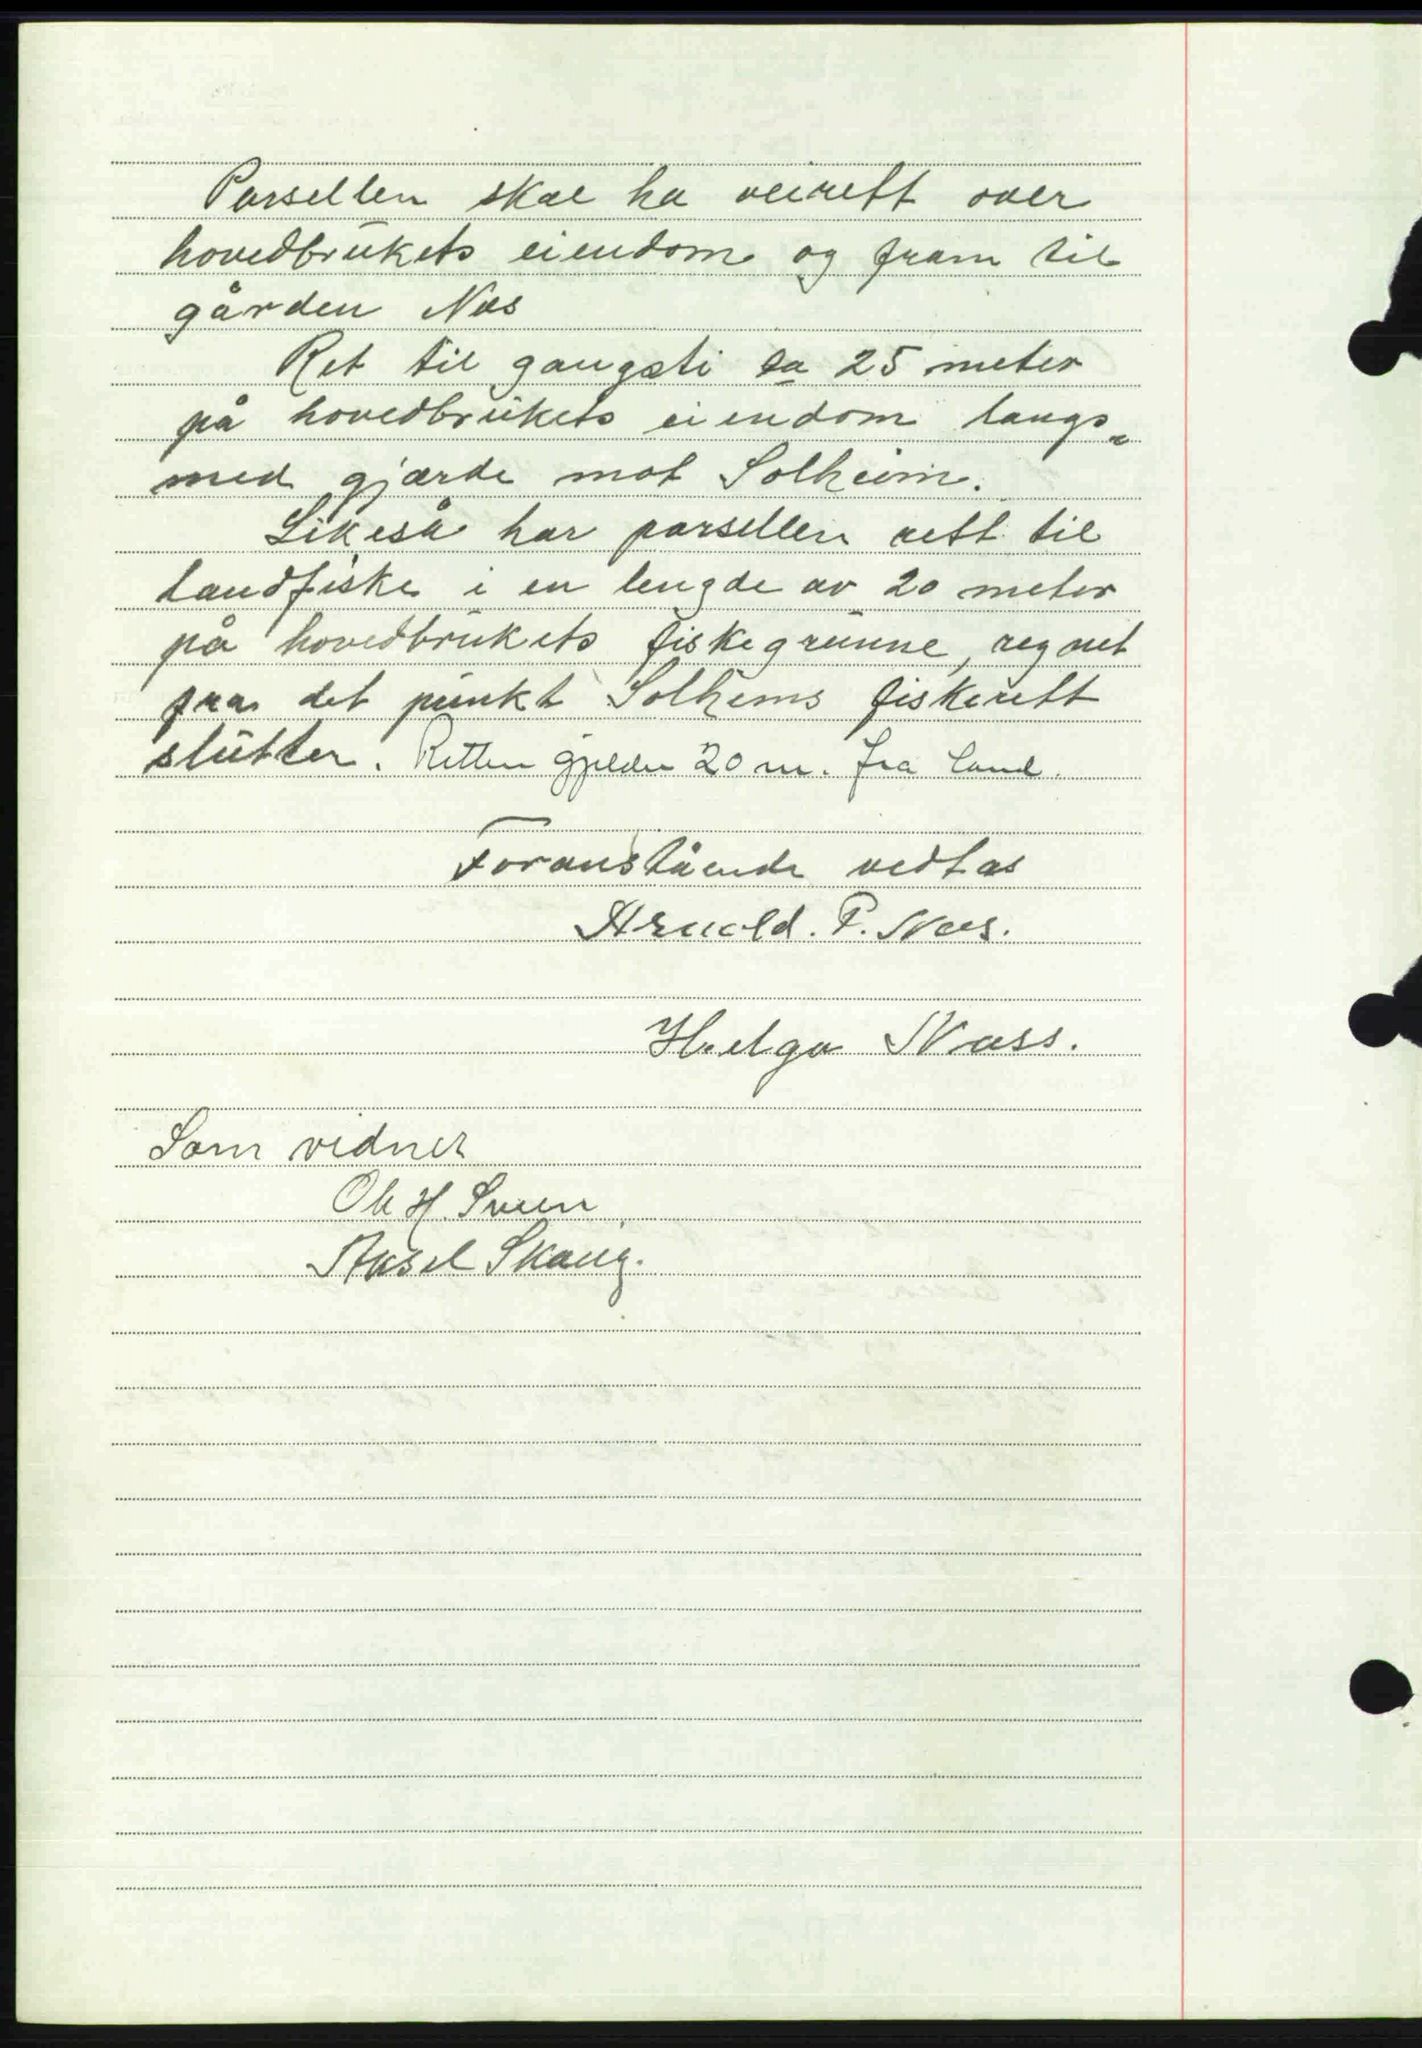 Parsellen skal ha veirett over
hovedbrukets eiendom og fram til
gården Nes
Ret til gangsti ca 25 meter
på hovedbrukets eiendom langs=
med gjærde mot Solheim.
Likeså har parsellen rett til
landfiske i en lengde av 20 meter
på hovedbrukets fiskegrunne, regnet
fra det punkt Solheims fiskerett
slutter. Retten gjelder 20 m. fra land.
Foranstående vedtas
Arnold. P. Nees.
Helga Næss.
Som vidner
Ole H. Sveen
Aksel Skaug.